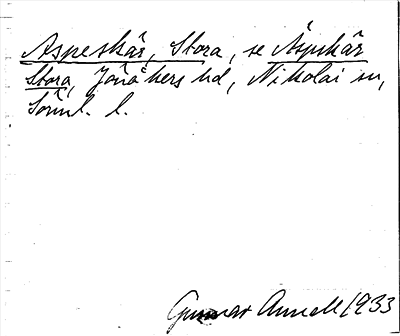 Aspeskär, Stora, se Äspskär
Stora, Jönåkers hd, Nikolai sn,
Sörml. l.
Gunnar Annell 1933